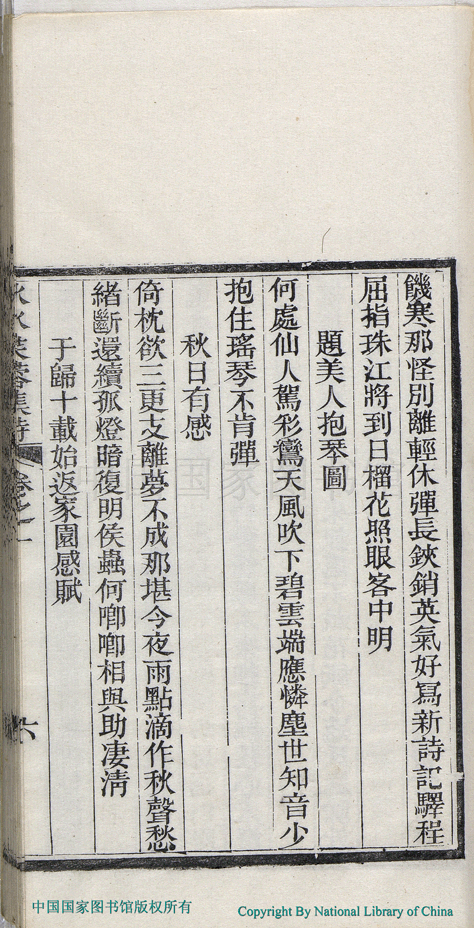 饑寒那怪別離輕休彈長鋏銷英氣好寫新詩記驛程
屈指珠江將到日榴花照眼客中明
題美人抱琴圖
何處仙人駕彩鸞天風吹下碧雲端應憐塵世知音少
抱住瑤琴不肯彈
秋日有感
倚枕欲三更支離夢不成那堪今夜雨點滴作秋聲愁
緒斷還續孤燈暗復明侯蟲何唧唧相與助凄淸
于歸十載始返家園感賦
芙蓉集詩
卷之一
六
国家
中国国家图书馆版权所有
Copyright By National Library of China